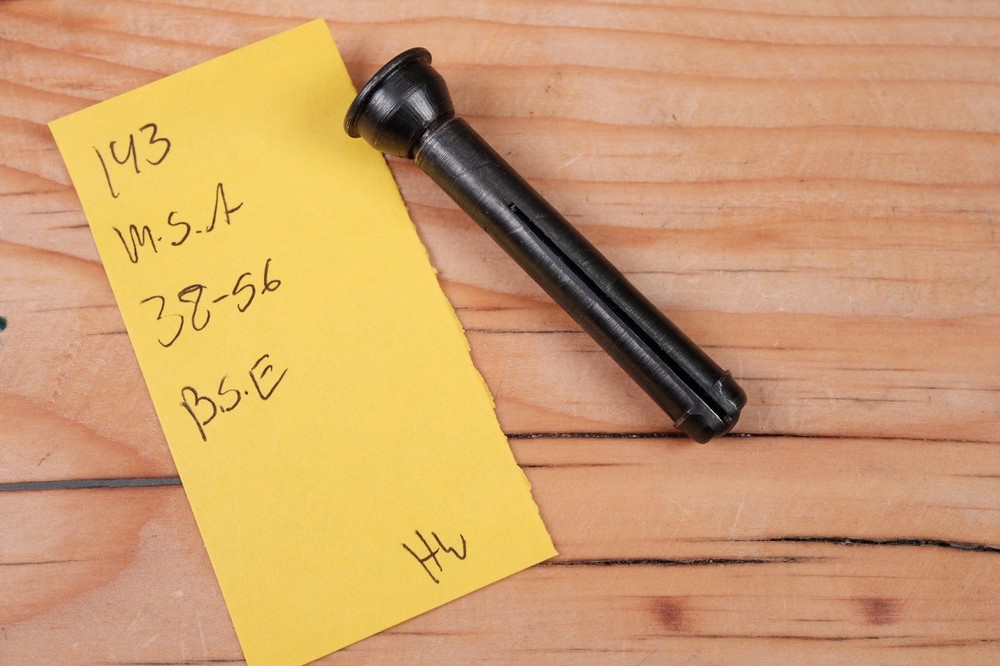 143
M.S.A
38-56
B.S.E
HW